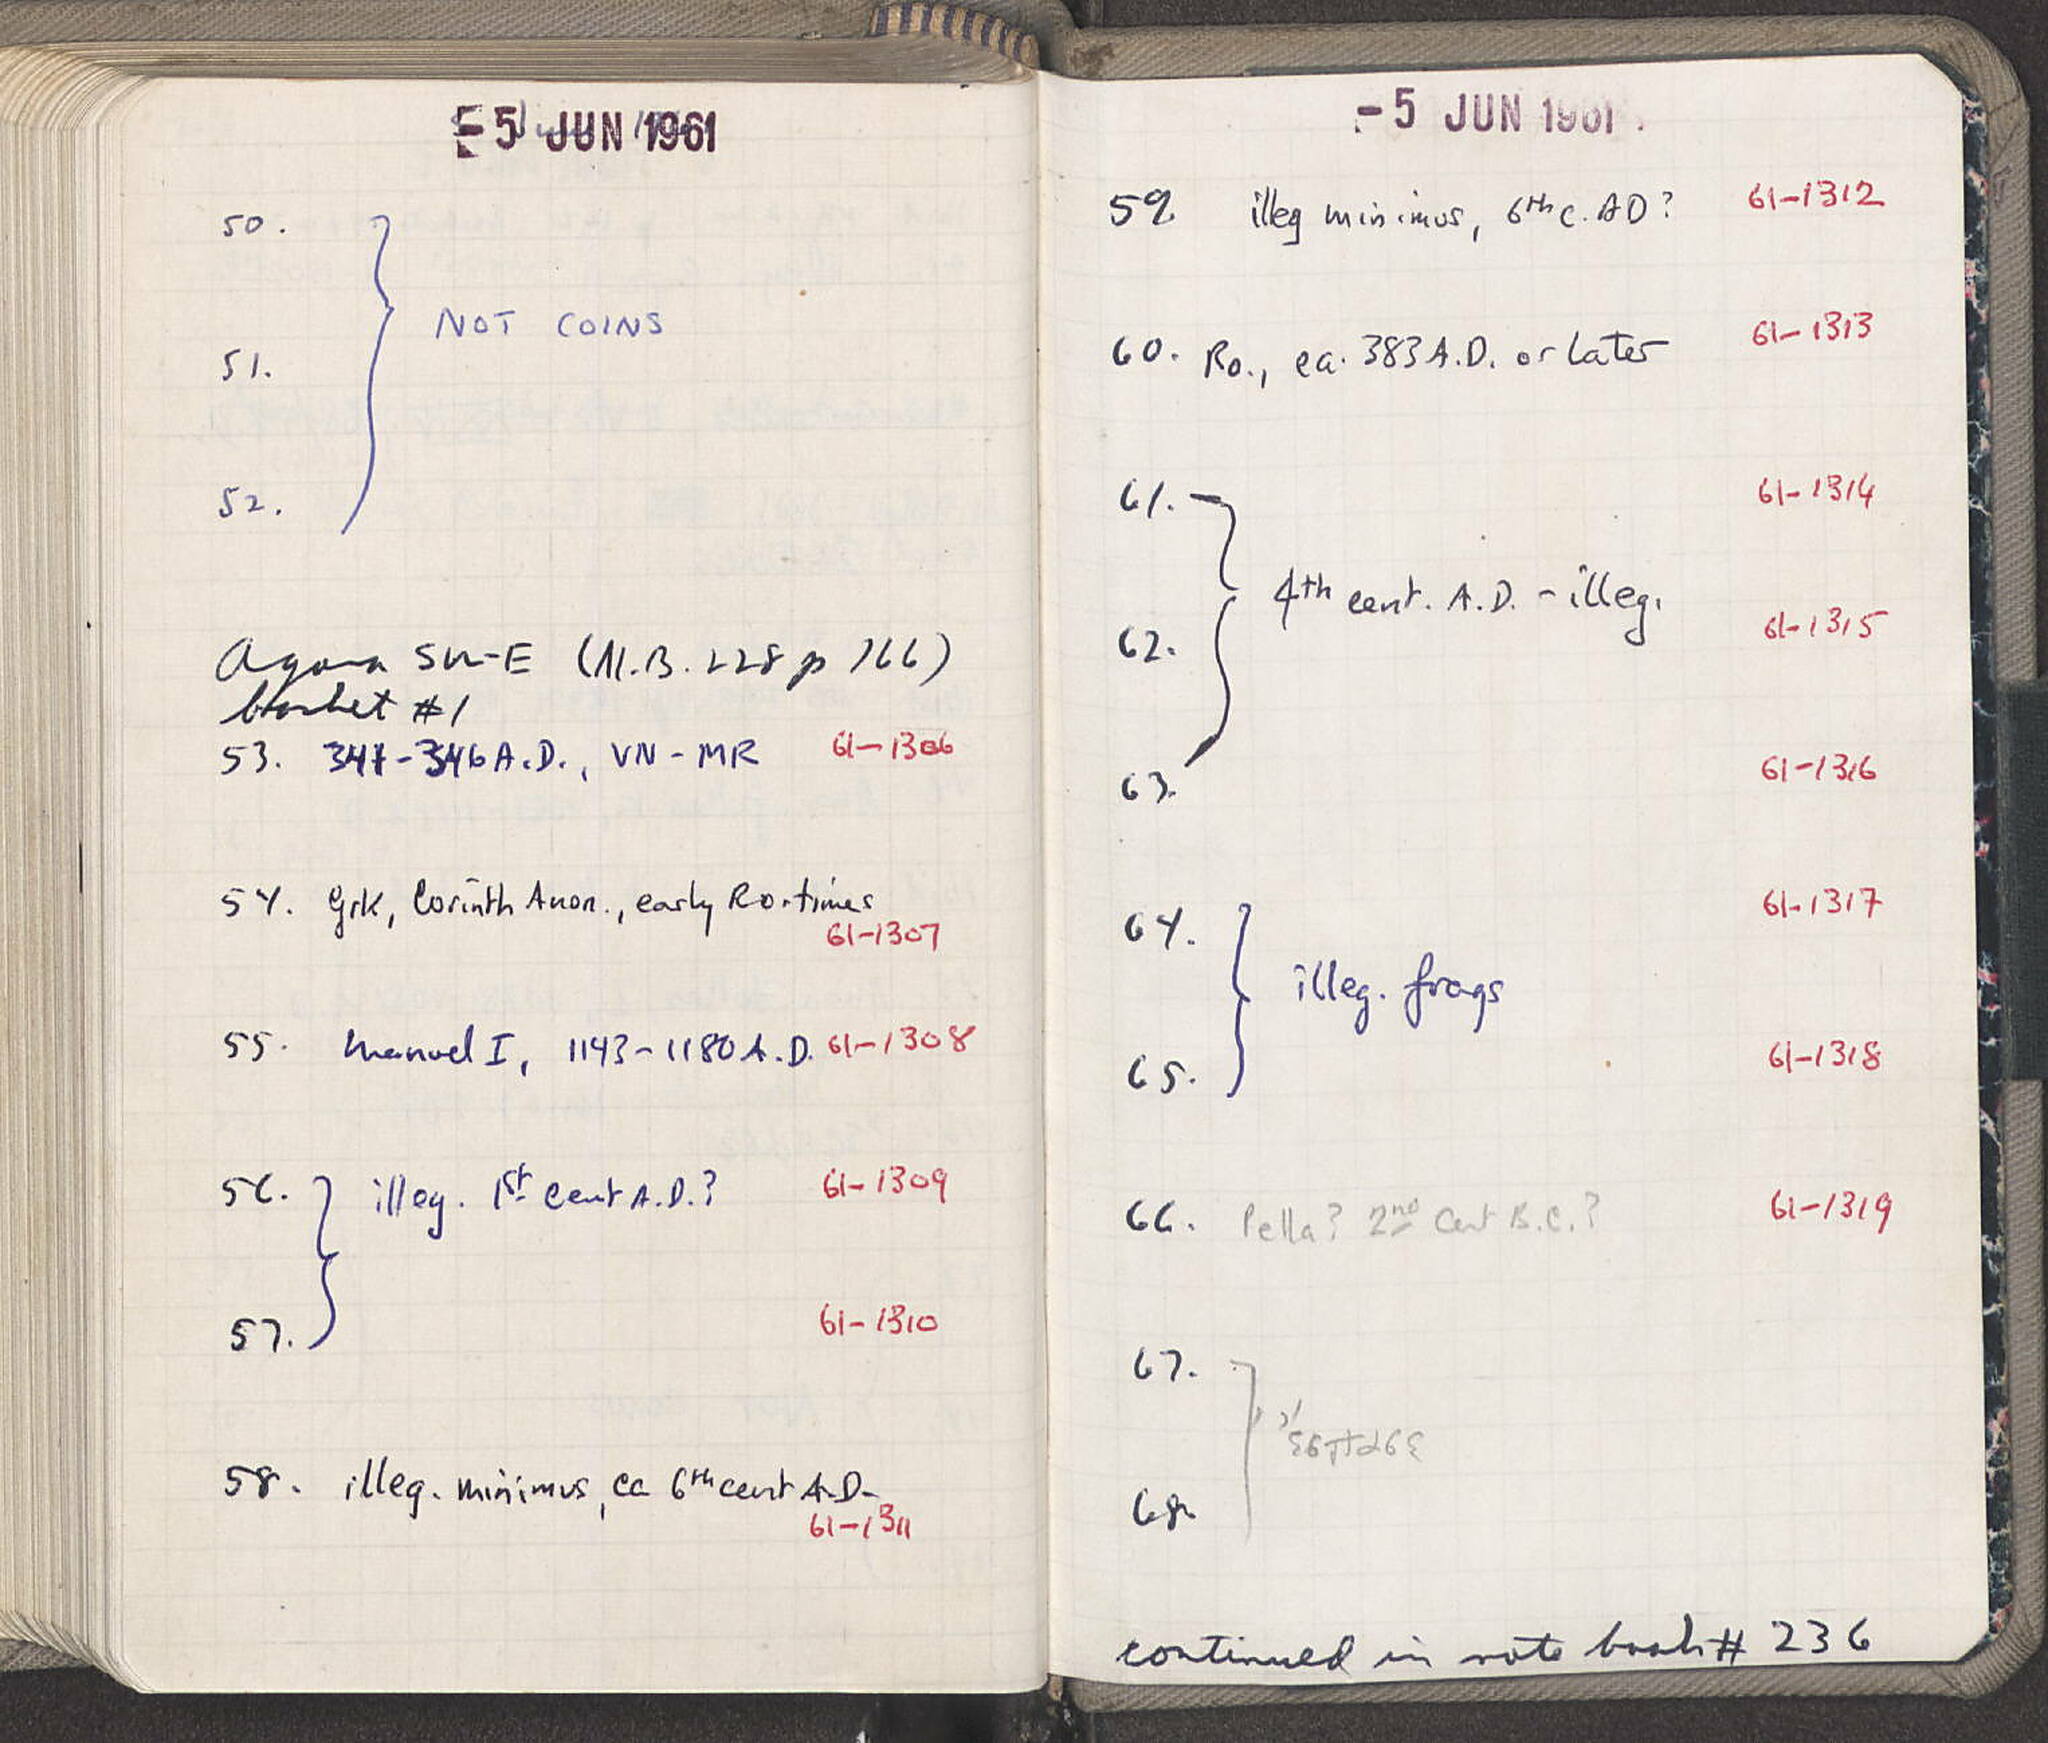 5 JUN 1961
50.
NOT COINS
51.
52.
Agora SW-E (N.B. 228 p 166)
basket #1
53. 341-346 A.D., VN-MR 61-1306
54. Grk, Corinth Anon., early Ro. times
61-1307
55. Manuel I, 1143-1180 A.D. 61-1308
56. illeg. 1st cent A.D.? 61-1309
57. 61-1310
58. illeg. minimus, ca 6th cent A.D.
61-1311
-5 JUN 1961
59. illeg minimus, 6th c. AD? 61-1312
60. Ro., ca. 383 A.D. or later 61-1313
61. 61-1314
4th cent. A.D. - illeg.
62. 61-1315
63. 61-1316
64. 61-1317
illeg. frags
65. 61-1318
66. Pella? 2nd Cent B.C.? 61-1319
67.
68.
continued in note book # 236